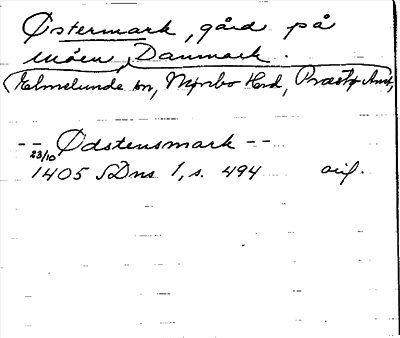 Østermark, gård på
Møen, Danmark.
(Elmelunde sn, Mønbo Hrd, Præstø Amt,
-- Ødstensmark --
23/10
1405 SDns 1, s. 494 orig.